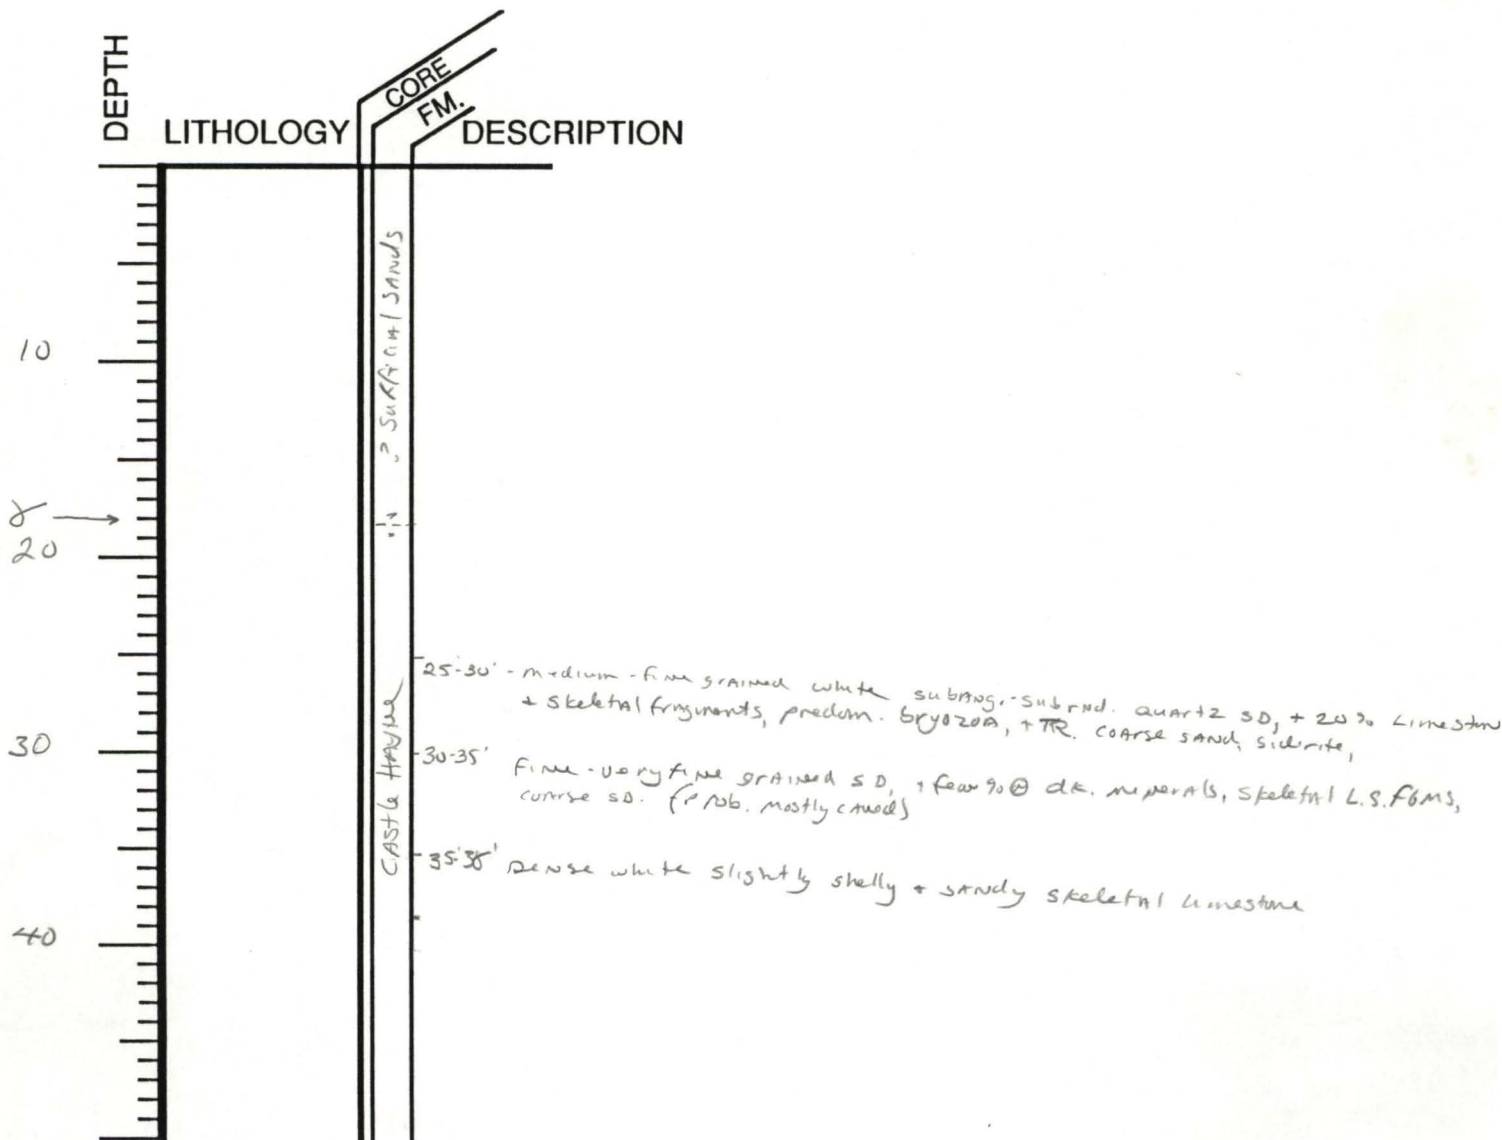 DEPTH
LITHOLOGY
CORE
FM.
DESCRIPTION
? SURFICIAL SANDS
10
γ →
20
?
CASTLE HAYNE
25-30' - medium-fine grained white subang.-subrnd. quartz SD, + 20% Limestone
+ skeletal fragments, predom. bryozoa, + TR. coarse sand, siderite,
30
30-35' Fine-very fine grained SD, + few % dk. minerals, skeletal L.S. FGMS,
coarse SD. (Prob. mostly caved)
35-38' Dense white slightly shelly + sandy skeletal limestone
40